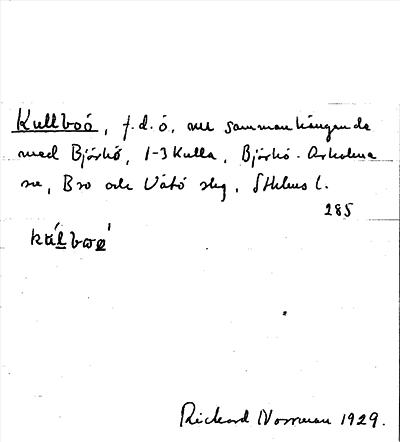 Kullboö, f.d. ö, nu sammanhängande
med Björkö, 1-3 Kulla, Björkö-Arholma
sn, Bro och Vätö slg, Sthlms l.
285
Rickard Norrman 1929.